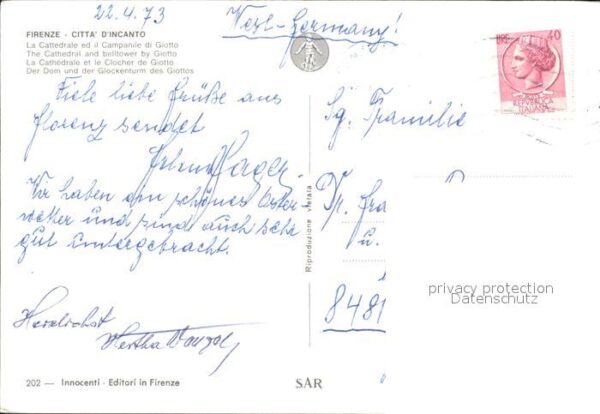 22.4.73
West-Germany!
FIRENZE - CITTA' D'INCANTO
La Cattedrale ed il Campanile di Giotto
The Cathedral and belltower by Giotto
La Cathédrale et le Clocher de Giotto
Der Dom und der Glockenturm des Giottos
40
REPUBBLICA
ITALIANA
Viele liebe Grüße aus
Florenz sendet
Wir haben ein schönes Oster-
wetter und sind auch sehr
gut untergebracht.
Herzlichst
Hertha
Sg. Familie
Dr.
u.
8481
Riproduzione vietata
privacy protection
Datenschutz
202 — Innocenti - Editori in Firenze
SAR